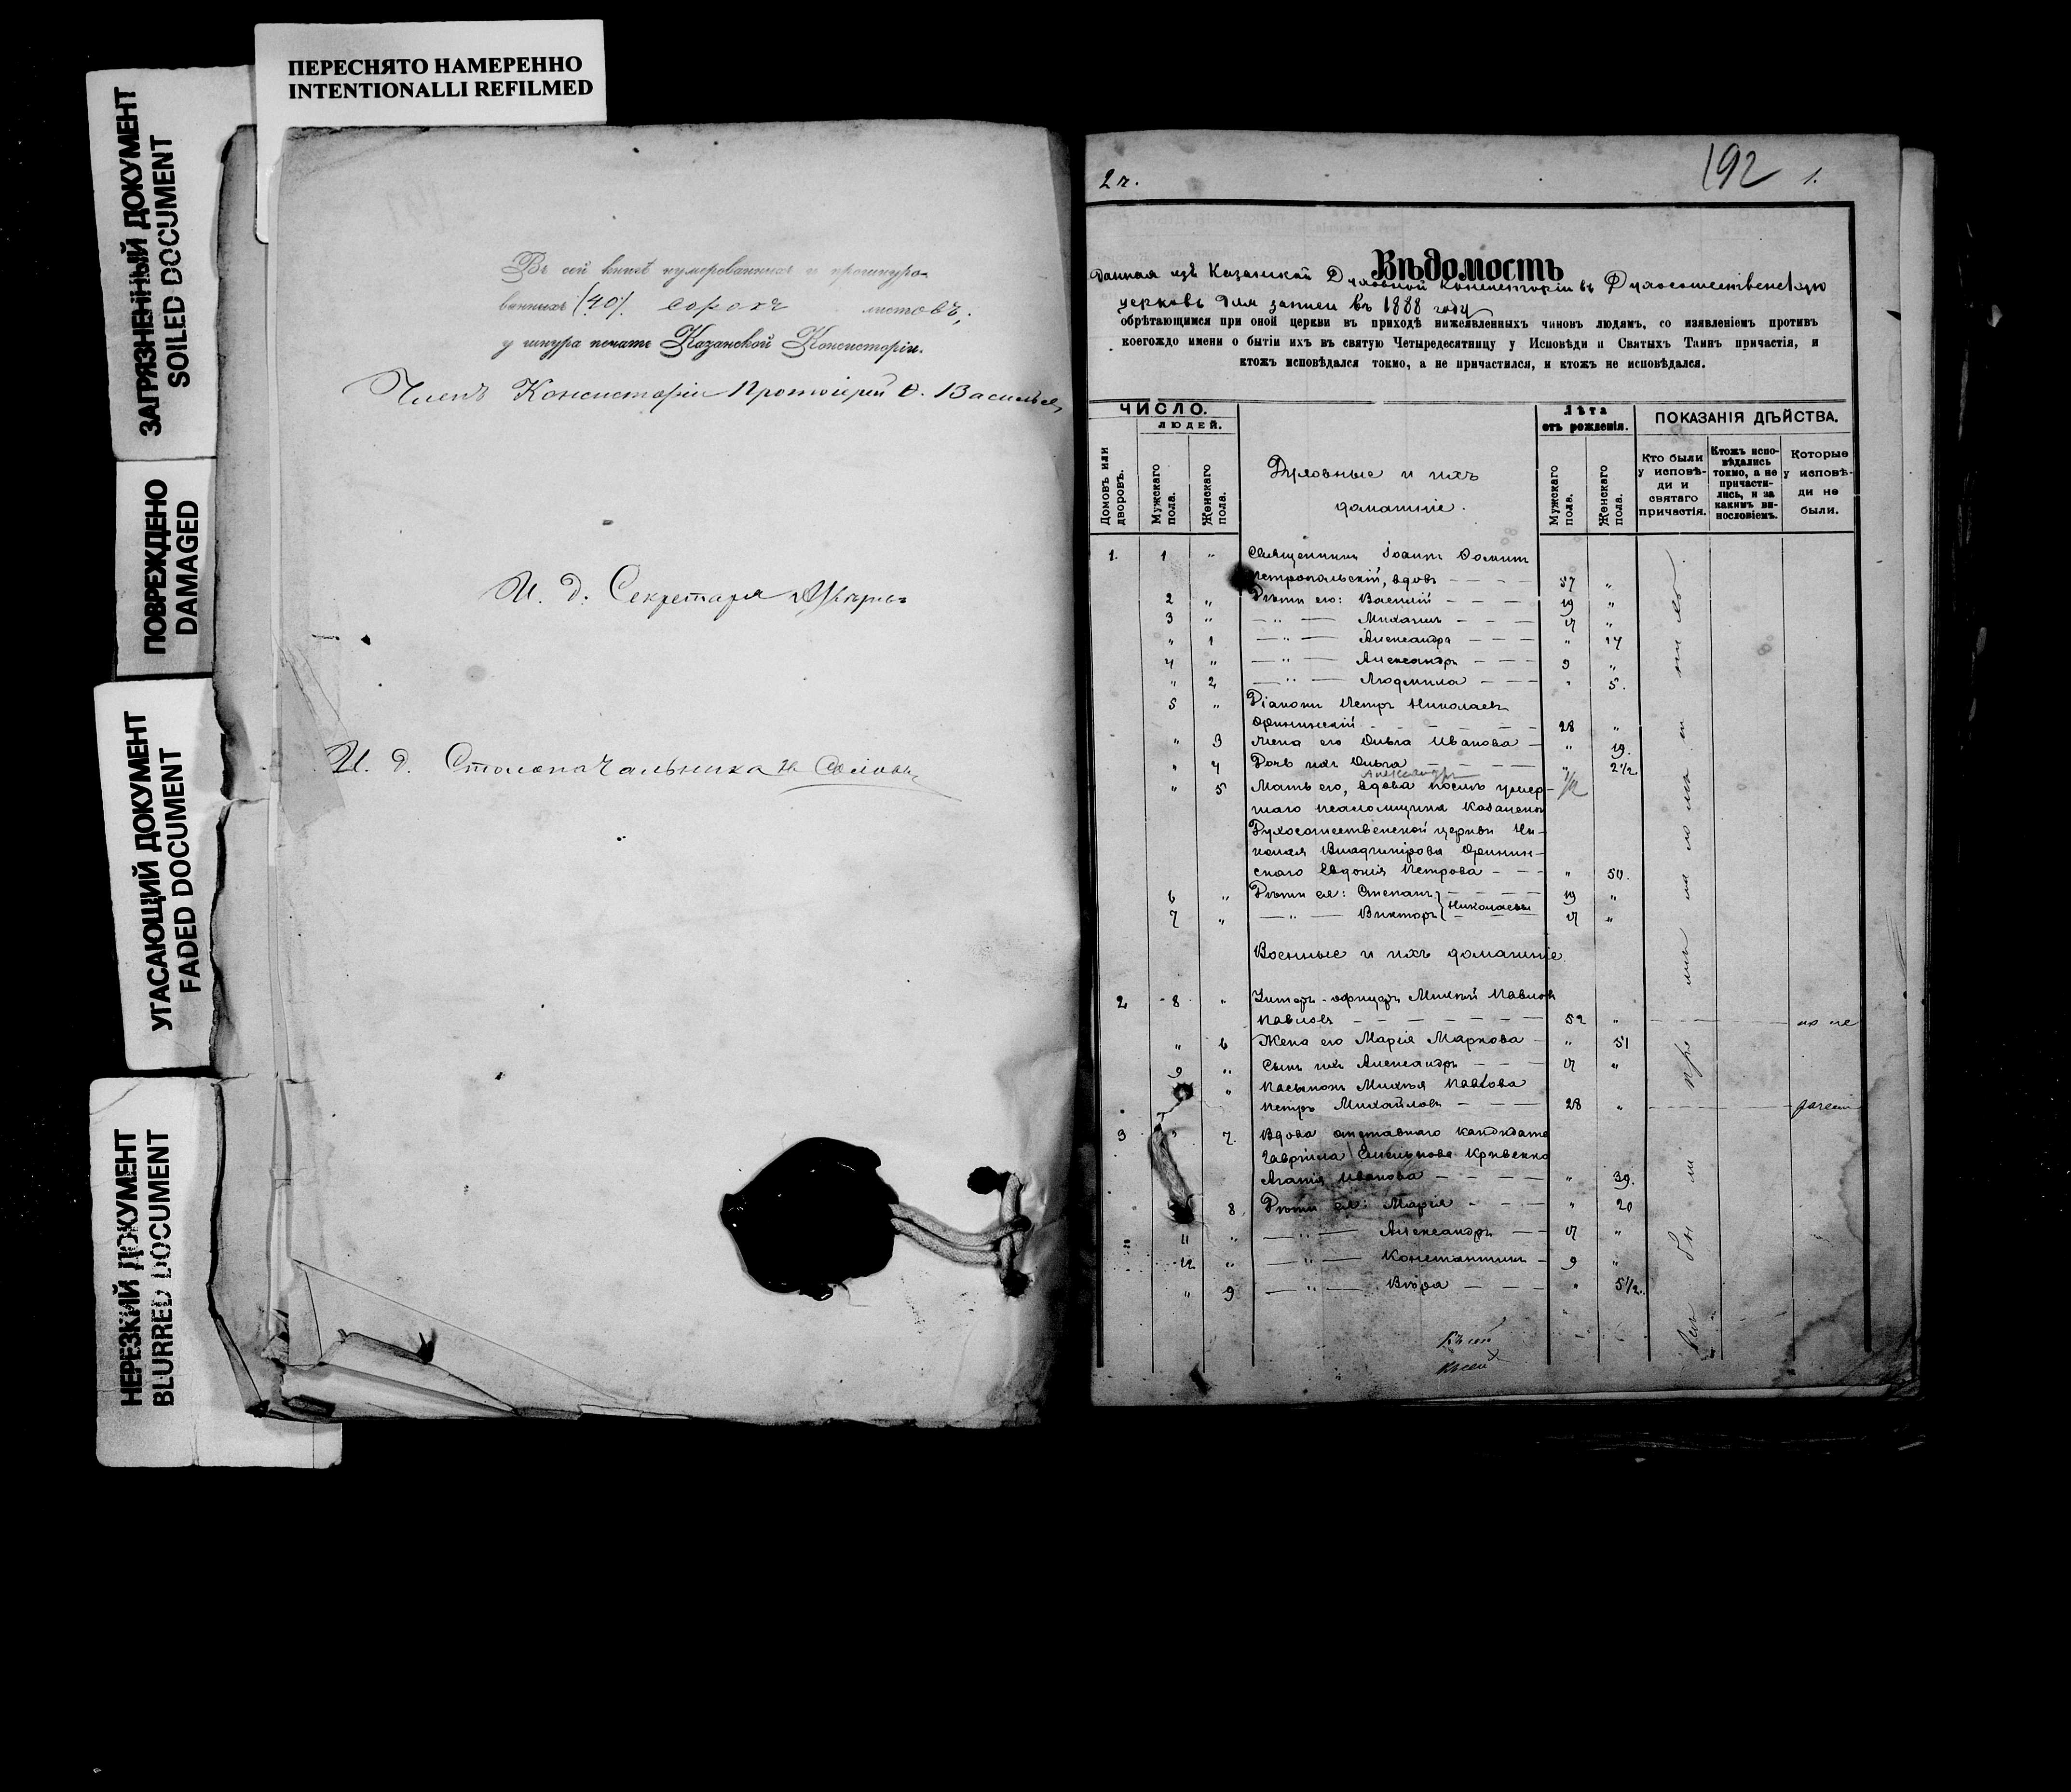 ПЕРЕСНЯТО НАМЕРЕННО
INTENTIONALLI REFILMED
ЗАГРЯЗНЕННЫЙ ДОКУМЕНТ
SOILED DOCUMENT
ПОВРЕЖДЕНО
DAMAGED
УГАСАЮЩИЙ ДОКУМЕНТ
FADED DOCUMENT
НЕРЕЗКИЙ ДОКУМЕНТ
BLURRED DOCUMENT
Въ сей книгѣ нумерованныхъ и прошнуро-
ванныхъ (40). сорокъ листовъ,
у шнура печать Казанской Консисторіи.
Членъ Консисторіи Протоіерей
И. д. Секретаря
И. д. Столоначальника
2 ч.
192 1.
Вѣдомость
Данная изъ Казанской Духовной Консисторіи въ Духосошественскую
церковь для записи въ 1888 году
обрѣтающимся при оной церкви въ приходѣ нижеявленныхъ чиновъ людямъ, со изявленіемъ противъ
коегождо имени о бытіи ихъ въ святую Четыредесятницу у Исповѣди и Святыхъ Таинъ причастія, и
ктожъ исповѣдался токмо, а не причастился, и ктожъ не исповѣдался.
ЧИСЛО.
ЛЮДЕЙ.
Домовъ или дворовъ.
Мужскаго пола.
Женскаго пола.
Духовные и ихъ
домашніе.
Лѣта
отъ рожденія.
Мужскаго пола.
Женскаго пола.
ПОКАЗАНІЯ ДѢЙСТВА.
Кто были у исповѣ-ди и святаго причастія.
Ктожъ испо-вѣдались токмо, а не причасти-лись, и за какимъ ви-нословіемъ.
Которые у исповѣ-ди не были.
1. 1 " Священникъ Іоаннъ
Петропольскій, вдовъ — — — 57 "
2 " Дѣти его: Василій — — — 19 "
3 " — " — Михаилъ — — — 17 "
" 1 — " — Александра — — — " 14
4 " — " — Александръ — — — 9 "
" 2 — " — Людмила — — — " 5.
5 " Діаконъ Петръ Николаевъ
— — — 28 "
" 3 Жена его Ольга Иванова — " 19.
" 4 Дочь ихъ Ольга — — — " 2 1/2
Александръ 1/2
" 5 Мать его, вдова послѣ умер-
шаго псаломщика Казанской
Духосошественской церкви Ни-
колая Владимірова
скаго Евдокія Петрова — — — " 50.
6 " Дѣти ея: Степанъ — — — 19 "
7 " — " — Викторъ } Николаевы 17 "
Военные и ихъ домашніе.
2 8 " Унтеръ-офицеръ Михей Павловъ
Павловъ — — — 52 "
" 6 Жена его Марія Маркова — " 51
9 " Сынъ ихъ Александръ — — 17 "
" Пасынокъ Михея Павлова
Петръ Михайловъ — — — 28 "
3 " 7. Вдова отставнаго кандидата
Гавріила Емельянова Кривенко
Агапія Иванова — — — " 39.
8 Дѣти ея: Марія — — — " 20
11 " — " — Александръ — 17 "
12 " — " — Константинъ — 9 "
" 9 — " — Вѣра — — — " 5 1/2.